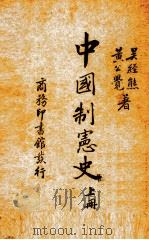 吳經熊
黃公覺
著
中國制憲史
上冊
商務印書館發行